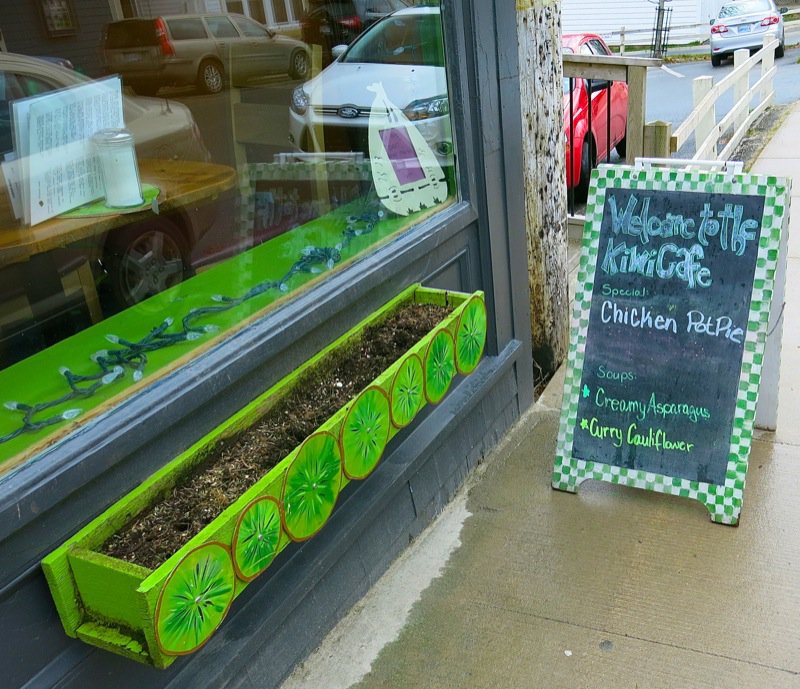 Welcome to the
Kiwi Cafe
Special:
Chicken Pot Pie
Soups:
Creamy Asparagus
Curry Cauliflower